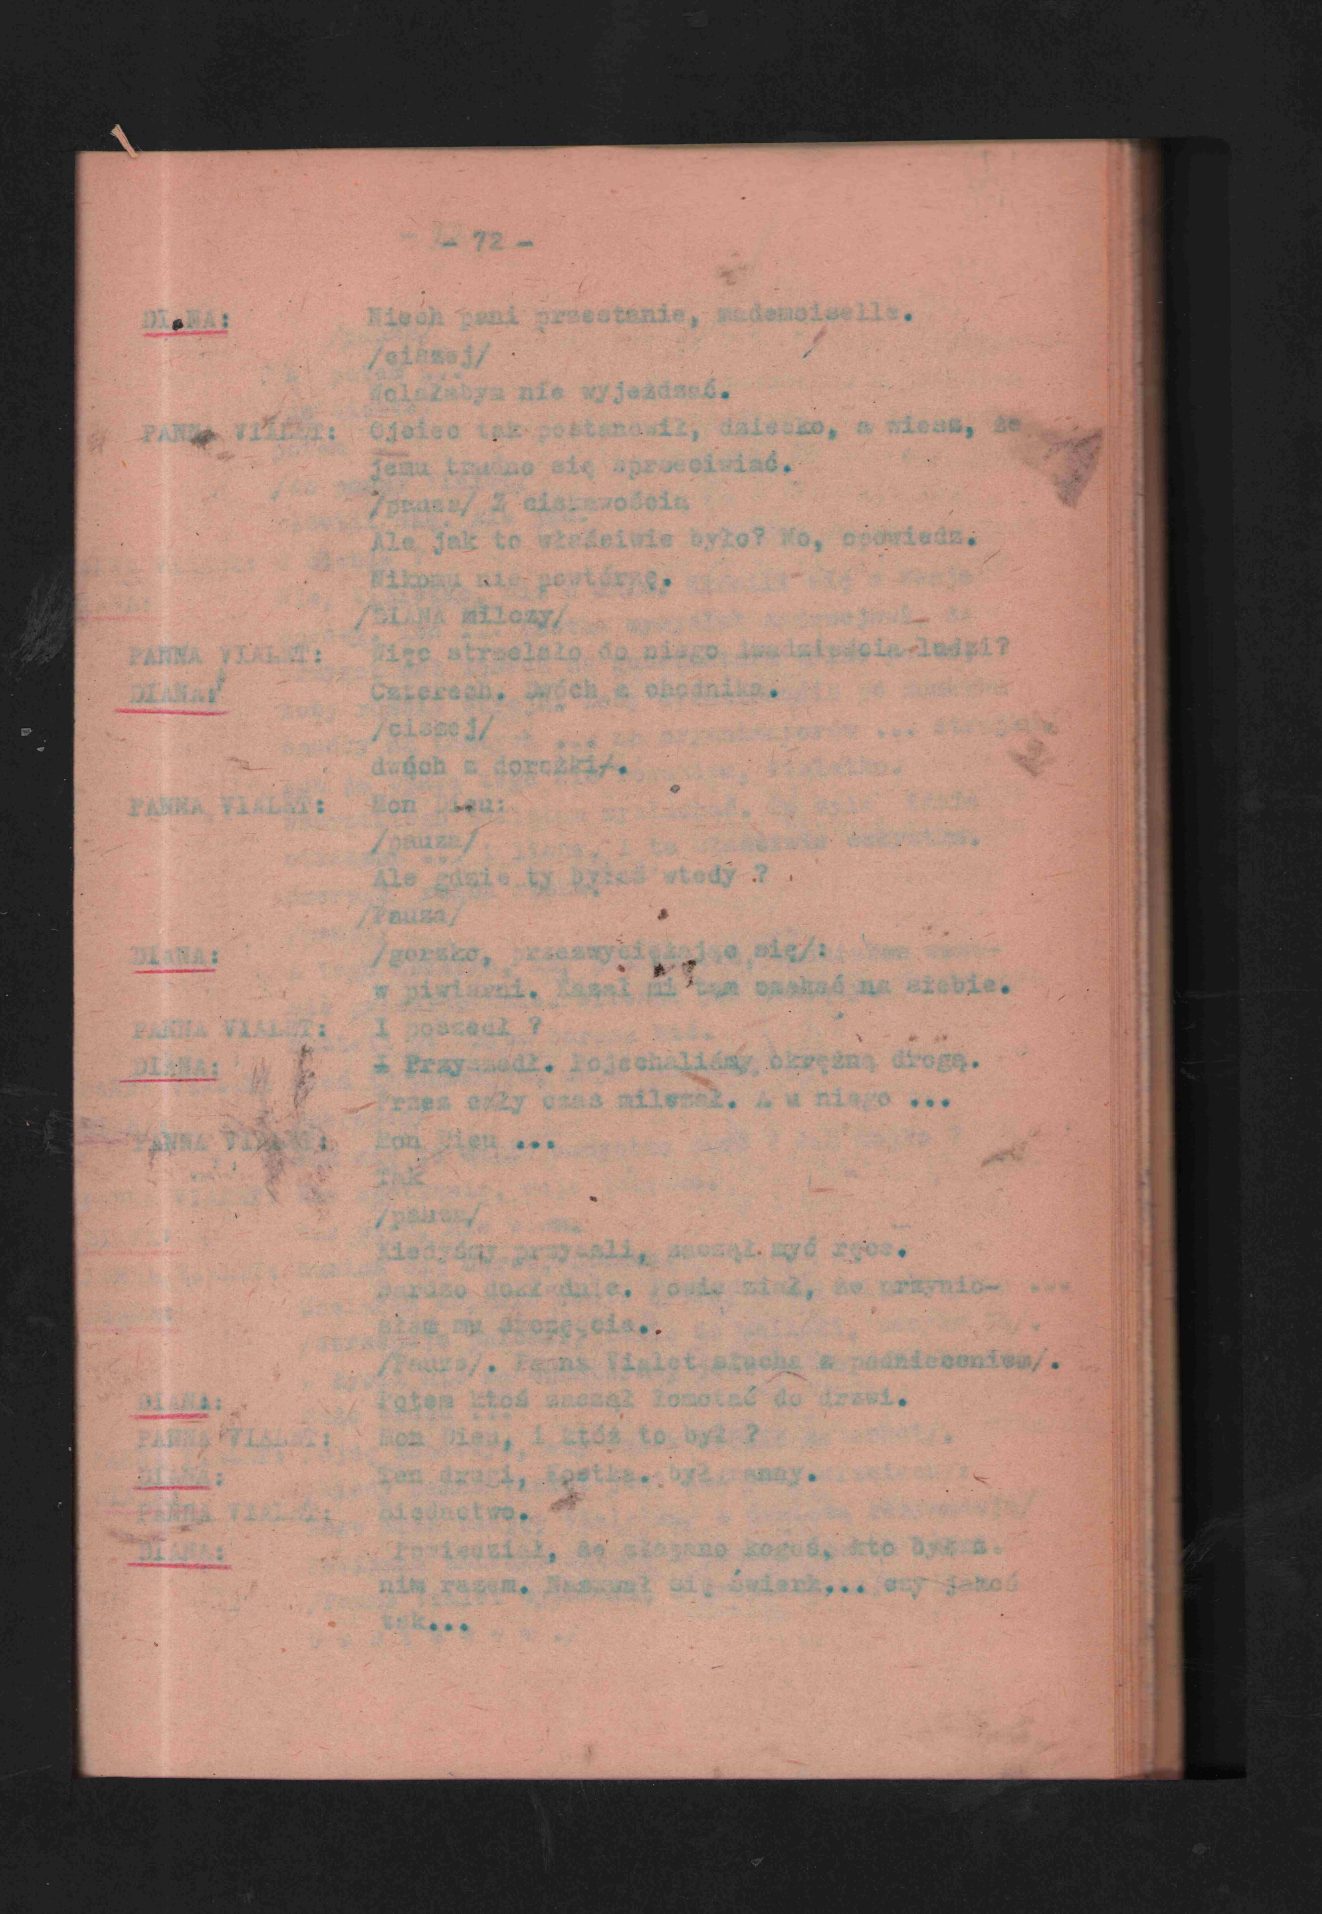 - 72 -
DIANA: Niech pani przestanie, mademoiselle.
/ciszej/
Wolałabym nie wyjeżdżać.
PANNA VIALET: Ojciec tak postanowił, dziecko, a wiesz, że
jemu trudno się sprzeciwiać.
/pauza/ Z ciekawością
Ale jak to właściwie było? No, opowiedz.
Nikomu nie powtórzę.
/DIANA milczy/
PANNA VIALET: Więc strzelało do niego dwadzieścia ludzi?
DIANA: Czterech. Dwóch z chodnika.
/ciszej/
dwóch z dorożki/.
PANNA VIALET: Mon Dieu:
/pauza/
Ale gdzie ty byłaś wtedy ?
/Pauza/
DIANA: /gorzko, przezwyciężając się/:
w piwiarni. Kazał mi tam czekać na siebie.
PANNA VIALET: I poszedł ?
DIANA: I Przyszedł. Pojechaliśmy okrężną drogą.
Przez cały czas milczał. A u niego ...
PANNA VIALET: Mon Dieu ...
Tak
/pauza/
Kiedyśmy przyszli, zaczął myć ręce.
Bardzo dokładnie. Powiedział, że przynio-
słam mu szczęście.
/Pauza/. Panna Vialet słucha z podnieceniem/.
DIANA: Potem ktoś zaczął łomotać do drzwi.
PANNA VIALET: Mon Dieu, i któż to był ?
DIANA: Ten drugi, Kostka. był ranny.
PANNA VIALET: Biedactwo.
DIANA: Powiedział, że złapano kogoś, kto był z
nim razem. Nazywał się Świerk... czy jakoś
tak...